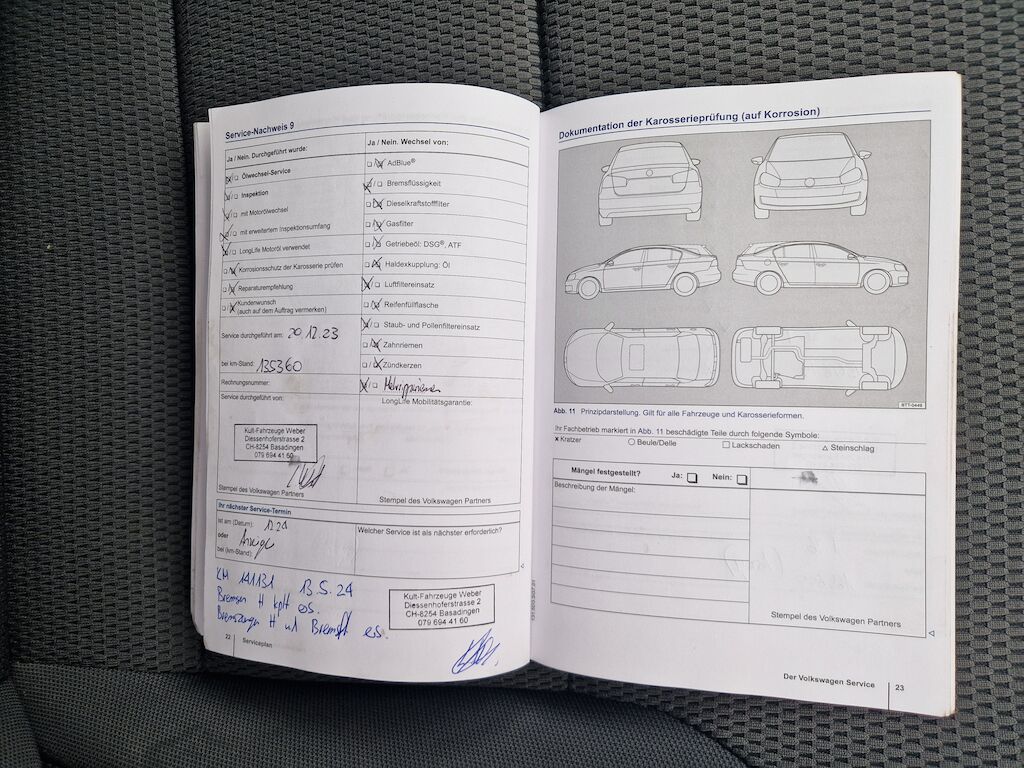 Service-Nachweis 9
Ja / Nein. Durchgeführt wurde:
Ölwechsel-Service
Inspektion
mit Motorölwechsel
mit erweitertem Inspektionsumfang
LongLife Motoröl verwendet
Korrosionsschutz der Karosserie prüfen
Reparaturempfehlung
Kundenwunsch
(auch auf dem Auftrag vermerken)
Service durchgeführt am: 20.12.23
bei km-Stand: 135360
Rechnungsnummer:
Service durchgeführt von:
Kult-Fahrzeuge Weber
Diessenhoferstrasse 2
CH-8254 Basadingen
079 694 41 60
Stempel des Volkswagen Partners
Ja / Nein. Wechsel von:
AdBlue®
Bremsflüssigkeit
Dieselkraftstofffilter
Gasfilter
Getriebeöl: DSG®, ATF
Haldexkupplung: Öl
Luftfiltereinsatz
Reifenfüllflasche
Staub- und Pollenfiltereinsatz
Zahnriemen
Zündkerzen
LongLife Mobilitätsgarantie:
Stempel des Volkswagen Partners
Ihr nächster Service-Termin
ist am (Datum):
oder Anzeige
bei (km-Stand):
Welcher Service ist als nächster erforderlich?
KM 141131 13.5.24
Bremsen H kplt es.
H
Kult-Fahrzeuge Weber
Diessenhoferstrasse 2
CH-8254 Basadingen
079 694 41 60
22 Serviceplan
Dokumentation der Karosserieprüfung (auf Korrosion)
BTT-0449
Abb. 11 Prinzipdarstellung. Gilt für alle Fahrzeuge und Karosserieformen.
Ihr Fachbetrieb markiert in Abb. 11 beschädigte Teile durch folgende Symbole:
× Kratzer ○ Beule/Delle □ Lackschaden △ Steinschlag
Mängel festgestellt? Ja: Nein:
Beschreibung der Mängel:
Stempel des Volkswagen Partners
Der Volkswagen Service 23